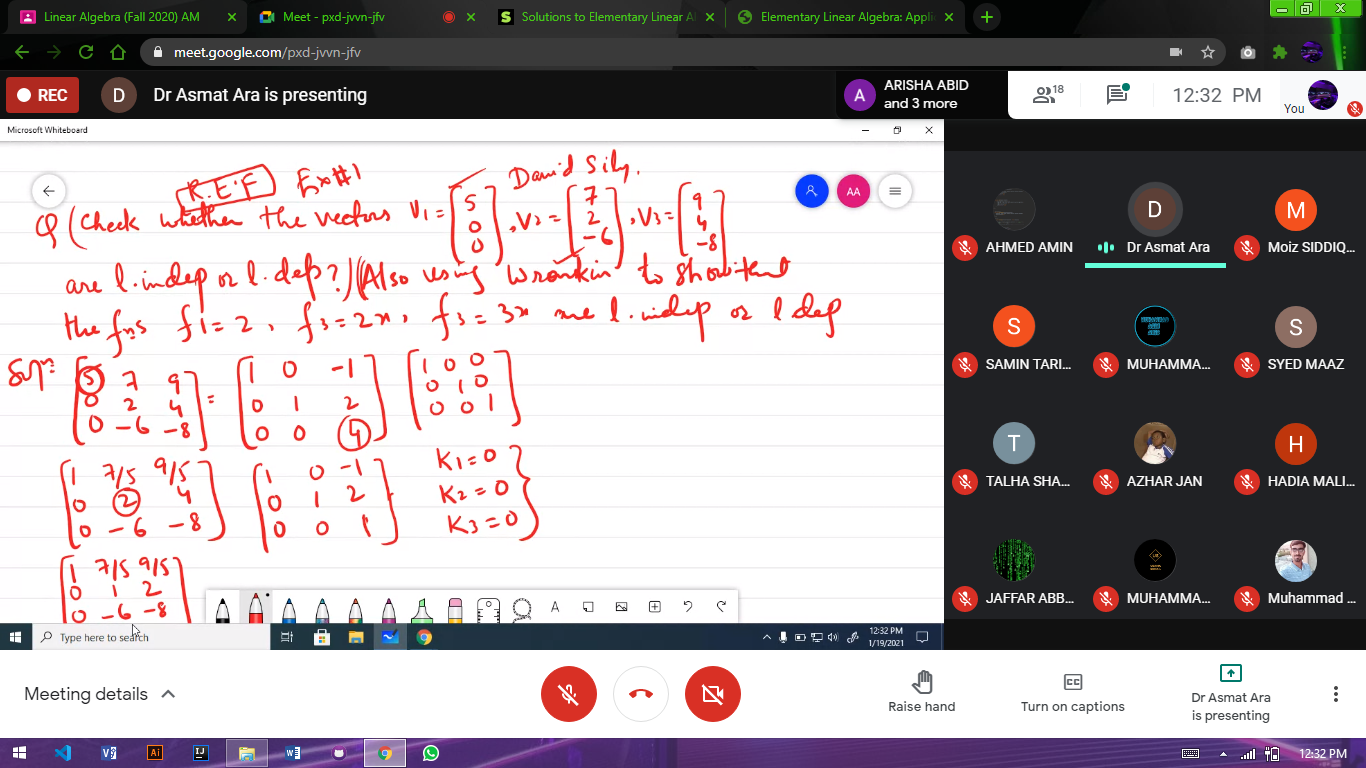 Linear Algebra (Fall 2020) AM
Meet - pxd-jvvn-jfv
Solutions to Elementary Linear Al
Elementary Linear Algebra: Appli
meet.google.com/pxd-jvvn-jfv
REC
D
Dr Asmat Ara is presenting
A
ARISHA ABID
and 3 more
18
12:32 PM
You
Microsoft Whiteboard
AA
R.E.F Ex#1 David
Q (Check whether the vectors v1 = [5 0 0], v2 = [7 2 -6], v3 = [9 4 -8]
are l.indep or l.dep?) (Also using wronkin to show that
the fns f1 = 2, f3 = 2x, f3 = 3x are l.indep or l dep
[5 7 9
0 2 4
0 -6 -8] =
[1 0 -1
0 1 2
0 0 4]
[1 0 0
0 1 0
0 0 1]
[1 7/5 9/5
0 2 4
0 -6 -8]
[1 0 -1
0 1 2
0 0 1]
K1 = 0
K2 = 0
K3 = 0
[1 7/5 9/5
0 1 2
0 -6 -8]
A
Type here to search
12:32 PM
1/19/2021
AHMED AMIN
D
Dr Asmat Ara
M
Moiz SIDDIQ...
S
SAMIN TARI...
MUHAMMA...
S
SYED MAAZ
T
TALHA SHA...
AZHAR JAN
H
HADIA MALI...
JAFFAR ABB...
MUHAMMA...
Muhammad ...
Meeting details
Raise hand
CC
Turn on captions
Dr Asmat Ara
is presenting
Ai
IJ
12:32 PM